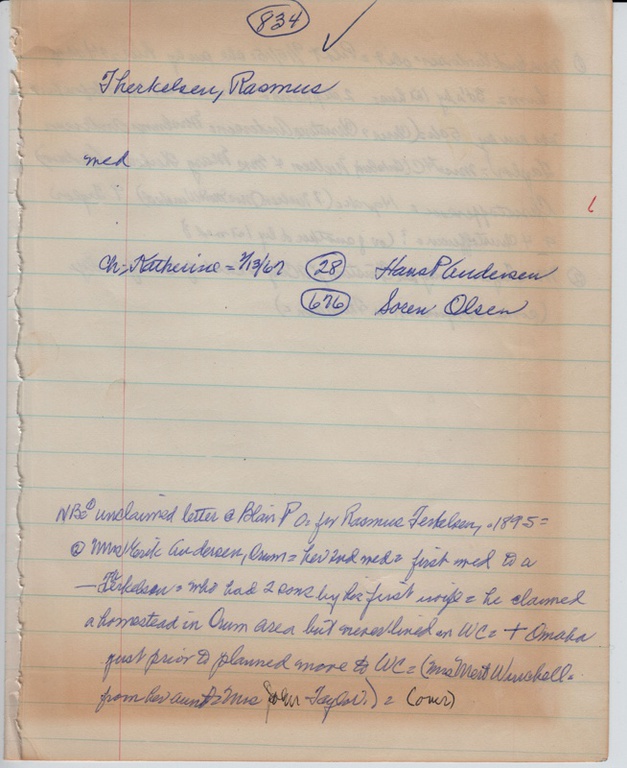 834
Therkelsen, Rasmus
med
Ch = Katherine = 7/13/67 (28) Hans P Andersen
(676) Soren Olsen
NB = ① unclaimed letter @ Blair P O. for Rasmus Terkelsen, 1895 =
② Mrs Andersen, Orum = her 2nd med = first med to a
— Terkelsen = who had 2 sons by his first wife = he claimed
a homestead in Orum area but never lived in WC = + Omaha
just prior to planned move to WC = (Mrs Mert Winchell =
from her aunt = Mrs John Taylor.) = (over)